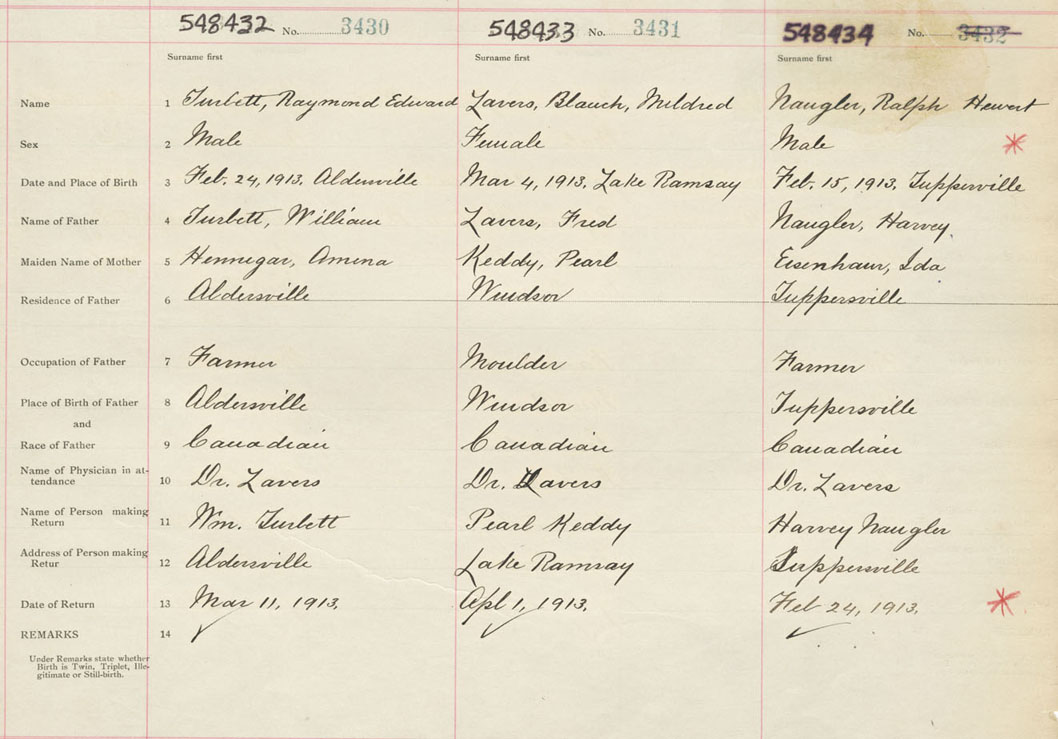 548432 No. 3430 548433 No. 3431 548434 No. 3432
Surname first Surname first Surname first
Name 1 Turbett, Raymond Edward Lavers, Blanch, Mildred Naugler, Ralph Hewert
Sex 2 Male Female Male *
Date and Place of Birth 3 Feb. 24, 1913. Aldersville Mar 4, 1913. Lake Ramsay Feb. 15, 1913. Tupperville
Name of Father 4 Turbett, William Lavers, Fred Naugler, Harvey.
Maiden Name of Mother 5 Hennigar, Amena Keddy, Pearl Eisenhaur, Ida
Residence of Father 6 Aldersville Windsor Tuppersville
Occupation of Father 7 Farmer Moulder Farmer
Place of Birth of Father 8 Aldersville Windsor Tuppersville
and
Race of Father 9 Canadian Canadian Canadian
Name of Physician in at-
tendance 10 Dr. Lavers Dr. Lavers Dr. Lavers
Name of Person making
Return 11 Wm. Turbett Pearl Keddy Harvey Naugler
Address of Person making
Retur 12 Aldersville Lake Ramsay Tuppersville
Date of Return 13 Mar 11, 1913. Apl 1, 1913. Feb 24, 1913. *
REMARKS 14 ✓ ✓ ✓
Under Remarks state whether
Birth is Twin, Triplet, Ille-
gitimate or Still-birth.